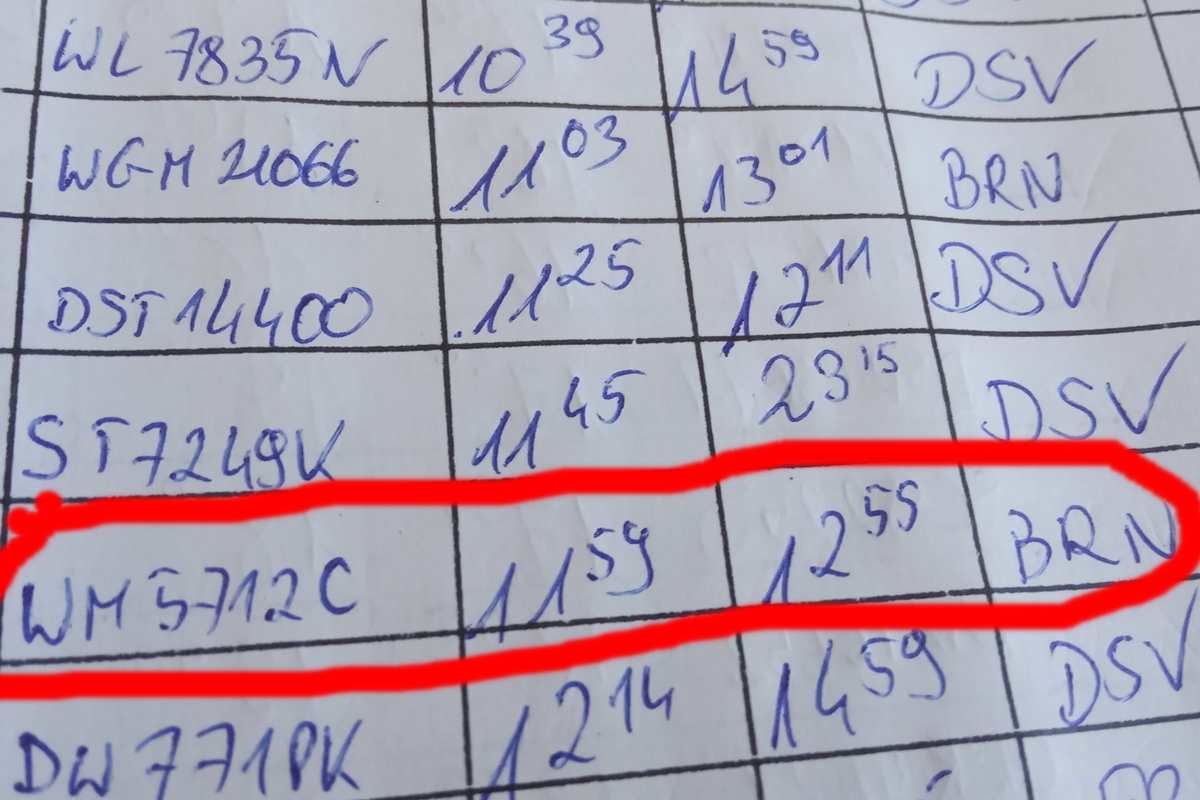 WL 7835N 10 39 14 59 DSV
WGM 21066 11 03 13 01 BRN
DST 14400 11 25 12 11 DSV
ST7249K 11 45 23 15 DSV
WM 5712C 11 59 12 55 BRN
DW 771PK 12 14 14 59 DSV